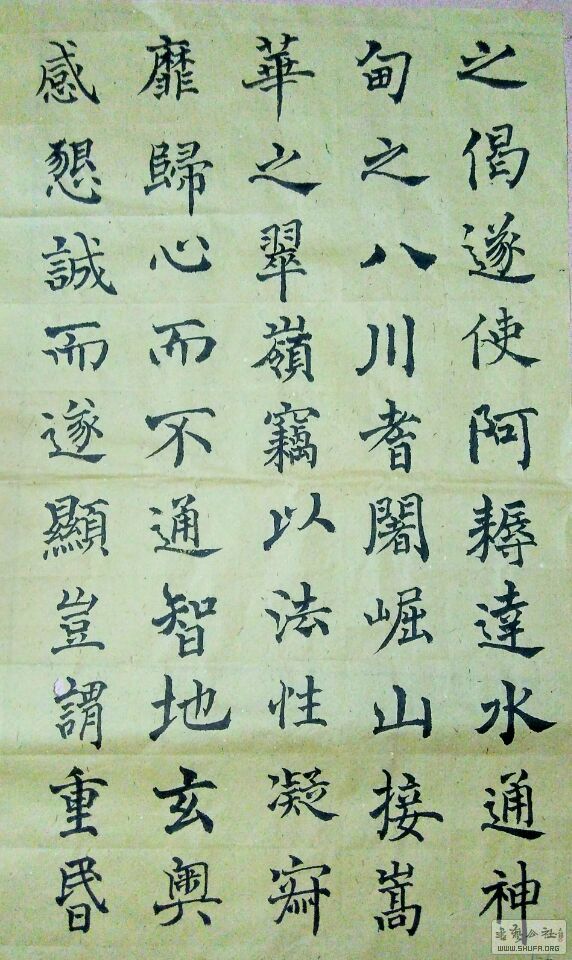 之偈遂使阿耨達水通神
甸之八川耆闍崛山接嵩
華之翠嶺竊以法性凝寂
靡歸心而不通智地玄奧
感懇誠而遂顯豈謂重昏
WWW.SHUFA.ORG